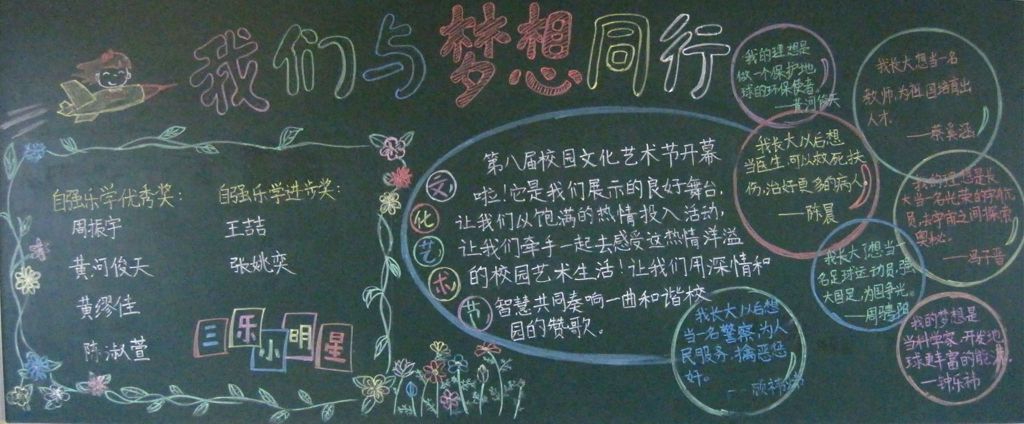 我们与梦想同行
自强乐学优秀奖:
周振宇
黄河俊天
黄缪佳
陈淑萱
自强乐学进步奖:
王喆
张姚奕
三乐小明星
文化艺术节
第八届校园文化艺术节开幕
啦!它是我们展示的良好舞台,
让我们以饱满的热情投入活动,
让我们牵手一起去感受这热情洋溢
的校园艺术生活!让我们用深情和
智慧共同奏响一曲和谐校
园的赞歌。
我的理想是
做一个保护地
球的环保使者。
——黄河俊天
我长大想当一名
教师,为祖国培育出
人才。
我长大以后想
当医生,可以救死扶
伤,治好更多的病人。
——陈晨
我的理想是长
大当一名光荣的宇航
员,去宇宙之间探索
奥秘。
——冯子晋
我长大了想当一
名足球运动员,强
大国足,为国争光。
我长大以后想
当一名警察,为人
民服务,擒恶惩
奸。
我的梦想是
当科学家,开发地
球更丰富的能源。